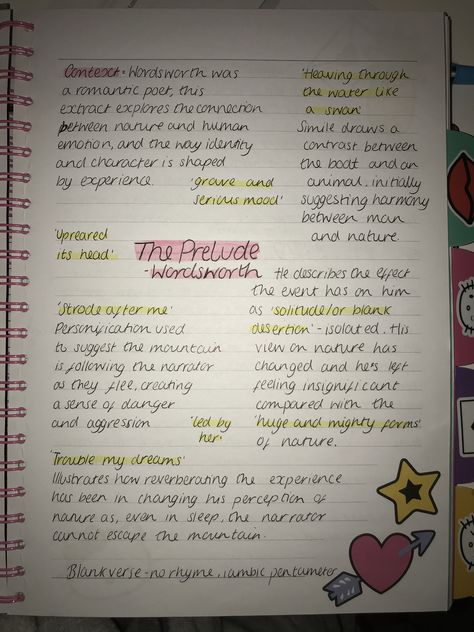 Context - Wordsworth was
a romantic poet, this
extract explores the connection
between nature and human
emotion, and the way identity
and character is shaped
by experience.
'grave and
serious mood'
'Heaving through
the water like
a swan'
Simile draws a
contrast between
the boat and an
animal, initially
suggesting harmony
between man
and nature.
'Upreared
its head'
The Prelude
- Wordsworth
He describes the effect
the event has on him
as 'solitude/or blank
desertion' - isolated. His
view on nature has
changed and he's left
feeling insignificant
compared with the
'huge and mighty forms'
of nature.
'Strode after me'
Personification used
to suggest the mountain
is following the narrator
as they flee, creating
a sense of danger
and aggression
'led by
her'
'Trouble my dreams'
Illustrates how reverberating the experience
has been in changing his perception of
nature as, even in sleep, the narrator
cannot escape the mountain.
Blank verse - no rhyme, iambic pentameter